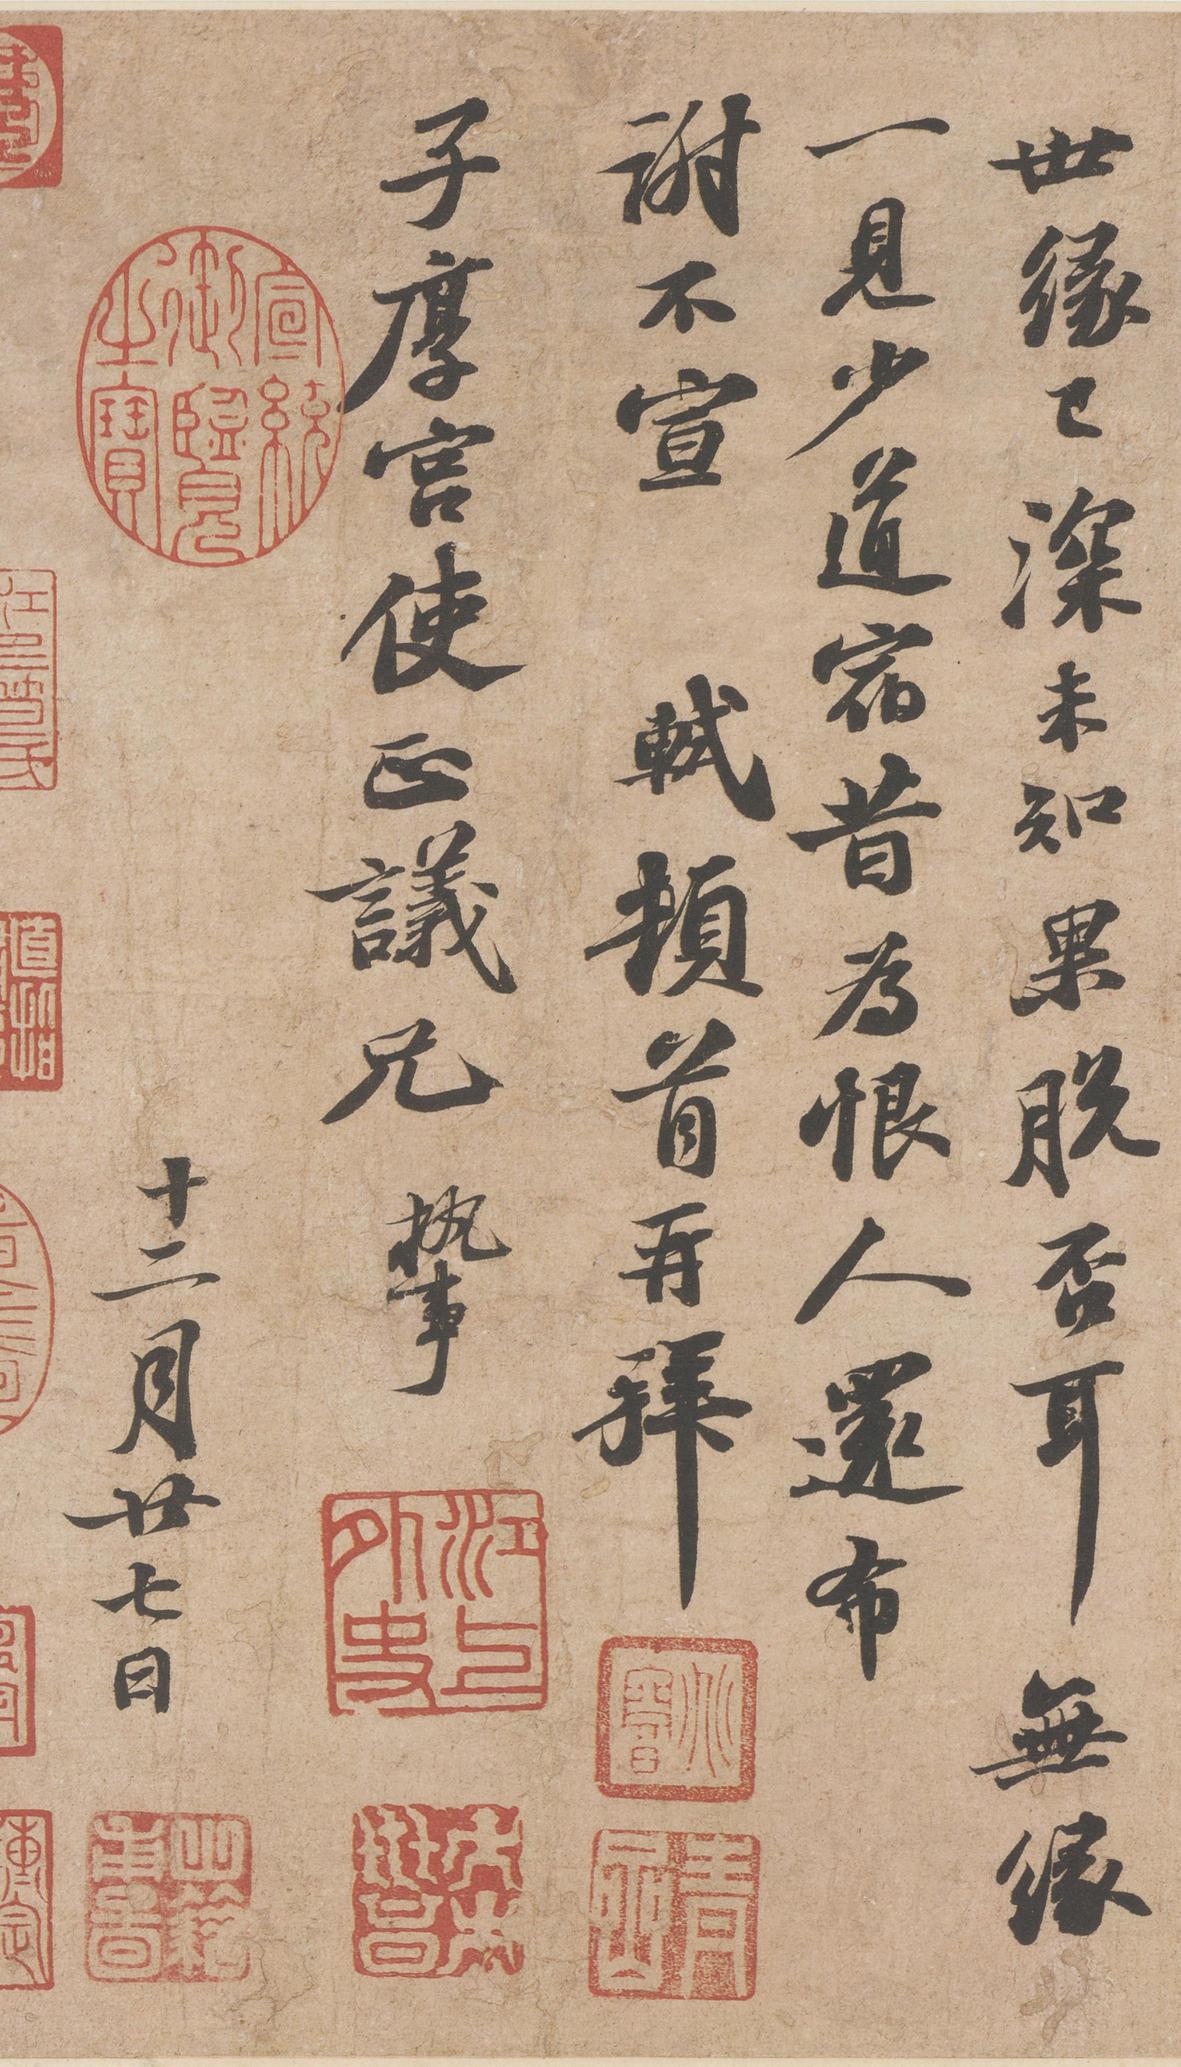 世緣已深未知果脫否耳無緣
一見少道宿昔為恨人還布
謝不宣軾頓首再拜
子厚宮使正議兄執事
十二月廿七日
宣統
御覽
之寶
江上
外史